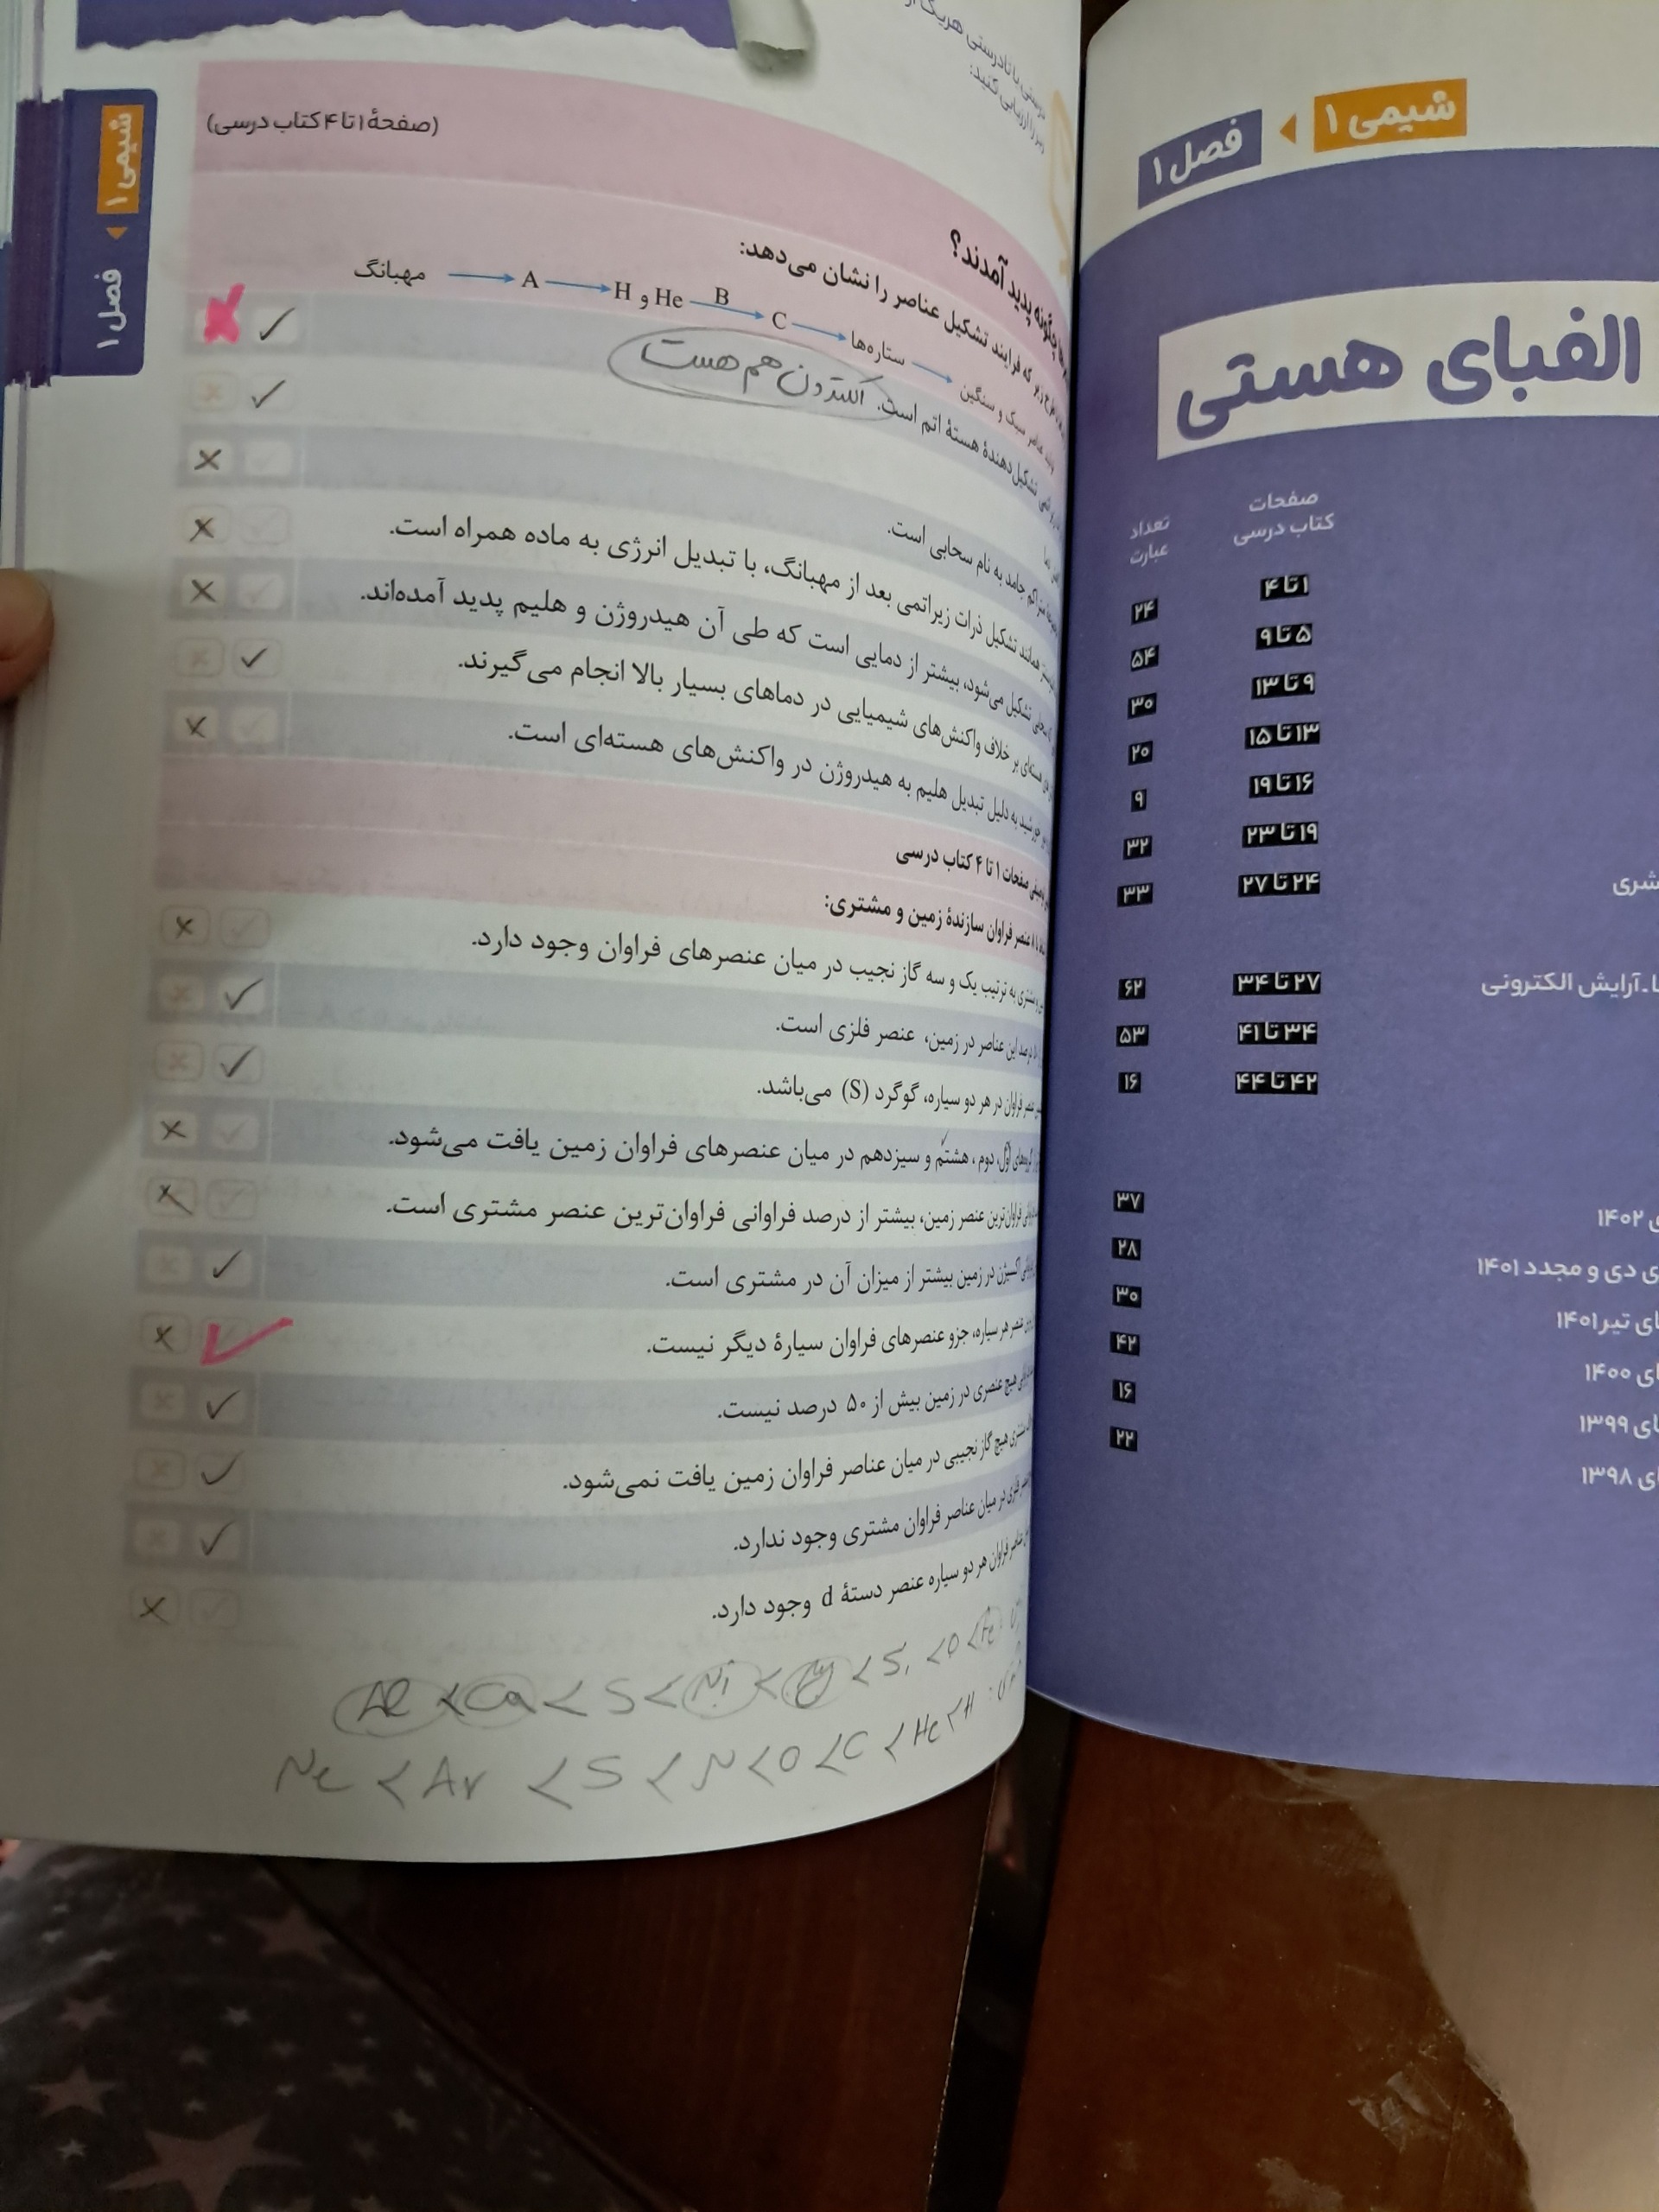 شیمی ۱
فصل ۱
الفبای هستی
صفحات
کتاب درسی
تعداد
عبارت
۱ تا ۴
۲۴
۵ تا ۹
۵۴
۹ تا ۱۳
۳۰
۱۳ تا ۱۵
۲۰
۱۶ تا ۱۹
۹
۱۹ تا ۲۳
۳۲
۲۴ تا ۲۷
۳۳
۲۷ تا ۳۴
۶۲
آرایش الکترونی
۳۴ تا ۴۱
۵۳
۴۲ تا ۴۴
۱۶
۳۷
۱۴۰۲
۲۸
دی و مجدد ۱۴۰۱
۳۰
تیر ۱۴۰۱
۴۲
۱۴۰۰
۱۶
۱۳۹۹
۲۲
۱۳۹۸
شیمی ۱
فصل ۱
درستی یا نادرستی هریک از
را ارزیابی کنید:
(صفحهٔ ۱ تا ۴ کتاب درسی)
چگونه پدید آمدند؟
که فرایند تشکیل عناصر را نشان می‌دهد:
مهبانگ → A → H و He B → C → ستاره‌ها → عناصر سبک و سنگین
تشکیل‌دهندهٔ هستهٔ اتم است. الکترون هم هست
متراکم جامد به نام سحابی است.
همانند تشکیل ذرات زیراتمی بعد از مهبانگ، با تبدیل انرژی به ماده همراه است.
تشکیل می‌شود، بیشتر از دمایی است که طی آن هیدروژن و هلیم پدید آمده‌اند.
هسته‌ای بر خلاف واکنش‌های شیمیایی در دماهای بسیار بالا انجام می‌گیرند.
خورشید به دلیل تبدیل هلیم به هیدروژن در واکنش‌های هسته‌ای است.
صفحات ۱ تا ۴ کتاب درسی
عنصر فراوان سازندهٔ زمین و مشتری:
به ترتیب یک و سه گاز نجیب در میان عنصرهای فراوان وجود دارد.
درصد این عناصر در زمین، عنصر فلزی است.
عنصر فراوان در هر دو سیاره، گوگرد (S) می‌باشد.
گروه‌های اول، دوم، هشتم و سیزدهم در میان عنصرهای فراوان زمین یافت می‌شود.
فراوان‌ترین عنصر زمین، بیشتر از درصد فراوانی فراوان‌ترین عنصر مشتری است.
اکسیژن در زمین بیشتر از میزان آن در مشتری است.
عنصر هر سیاره، جزو عنصرهای فراوان سیارهٔ دیگر نیست.
هیچ عنصری در زمین بیش از ۵۰ درصد نیست.
مشتری هیچ گاز نجیبی در میان عناصر فراوان زمین یافت نمی‌شود.
در میان عناصر فراوان مشتری وجود ندارد.
عناصر فراوان هر دو سیاره عنصر دستهٔ d وجود دارد.
Al < Ca < S < Ni < Mg < Si < O < Fe
Ne < Ar < S < N < O < C < He < H